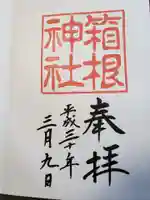 奉拝
箱根
神社
平成三十年
三月九日